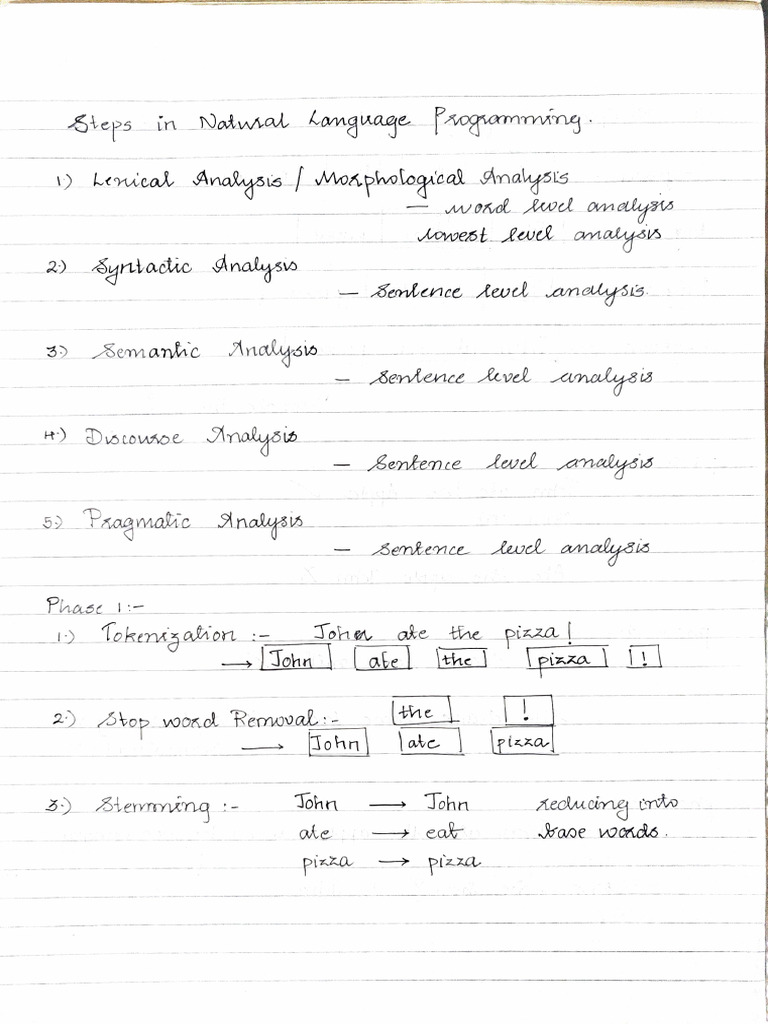 Steps in Natural Language Programming.
1) Lexical Analysis / Morphological Analysis
— word level analysis
lowest level analysis
2.) Syntactic Analysis
— Sentence level analysis.
3.) Semantic Analysis
— Sentence level analysis
4.) Discourse Analysis
— Sentence level analysis
5.) Pragmatic Analysis
— Sentence level analysis
Phase 1:-
1.) Tokenization :- John ate the pizza!
→ John ate the pizza !
2.) Stop word Removal:- the !
→ John ate pizza
3.) Stemming :- John → John reducing into
ate → eat base words.
pizza → pizza